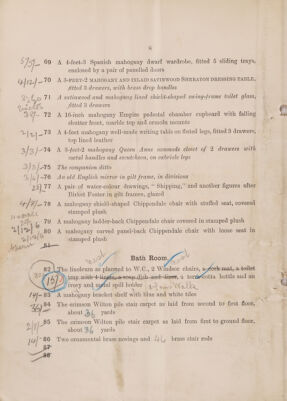 8
57/- 69 A 4-feet-3 Spanish mahogany dwarf wardrobe, fitted 5 sliding trays,
enclosed by a pair of panelled doors
4/12/- 70 A 3-FEET-2 MAHOGANY AND INLAID SATINWOOD SHERATON DRESSING TABLE,
fitted 3 drawers, with brass drop handles
71 A satinwood and mahogany lined shield-shaped swing-frame toilet glass,
fitted 3 drawers
72 A 16-inch mahogany Empire pedestal chamber cupboard with falling
shutter front, marble top and ormolu mounts
2/2/- 73 A 4-feet mahogany well-made writing table on fluted legs, fitted 3 drawers,
top lined leather
3/3/- 74 A 3-feet-2 mahogany Queen Anne commode closet of 2 drawers with
metal handles and scutcheon, on cabriole legs
3/3/- 75 The companion ditto
76 An old English mirror in gilt frame, in divisions
77 A pair of water-colour drawings, "Shipping," and another figures after
Birket Foster in gilt frames, glazed
78 A mahogany shield-shaped Chippendale chair with stuffed seat, covered
stamped plush
79 A mahogany ladder-back Chippendale chair covered in stamped plush
80 A mahogany carved panel-back Chippendale chair with loose seat in
stamped plush
81
Bath Room
82 The linoleum as planned to W.C., 2 Windsor chairs, a cork mat, a toilet
15/- ... bottle and an
ivory and metal spill holder
83 A mahogany bracket shelf with blue and white tiles
84 The crimson Wilton pile stair carpet as laid from second to first floor,
about 36 yards
85 The crimson Wilton pile stair carpet as laid from first to ground floor,
about 36 yards
14/- 86 Two ornamental brass casings and 46 brass stair rods
87
88